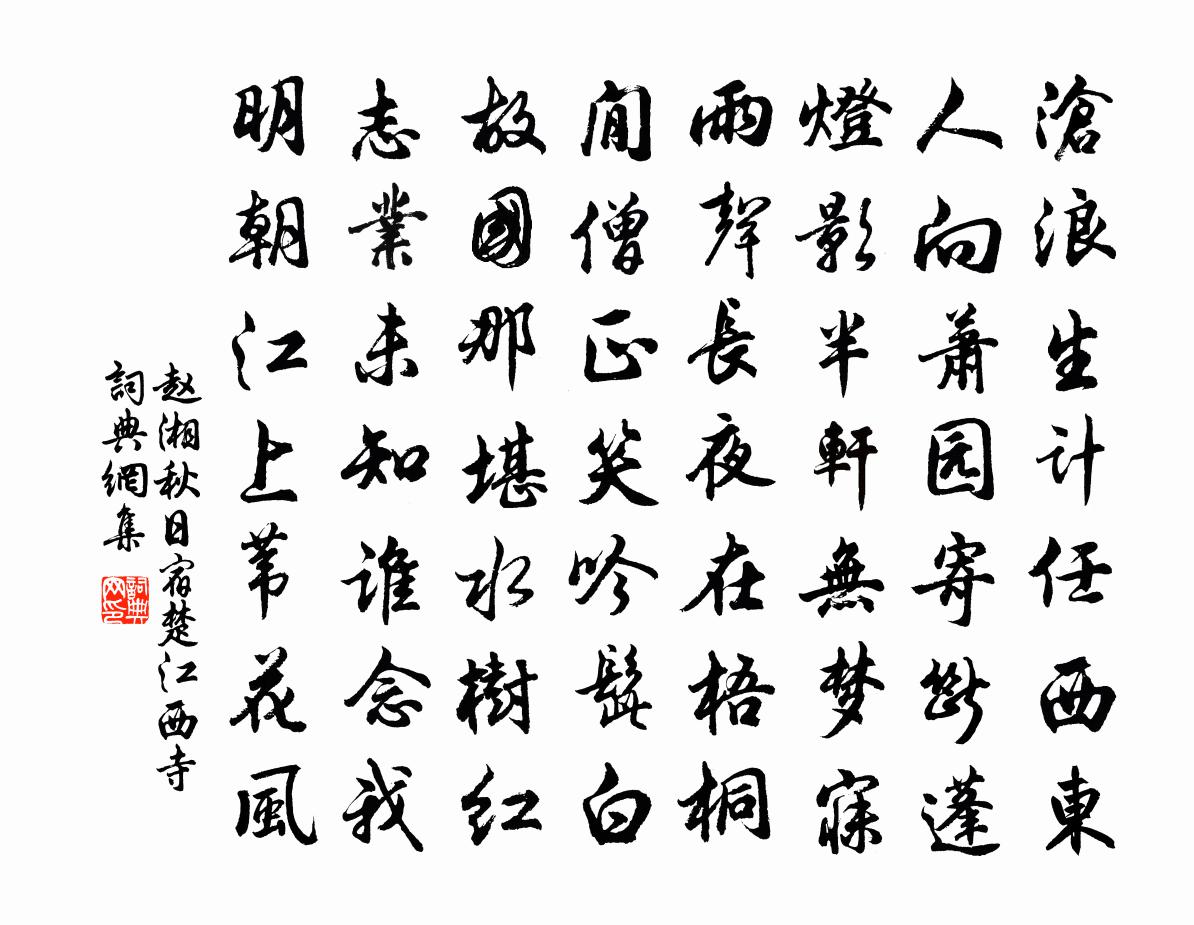 滄浪生计任西東
人向萧园寄断蓬
燈影半軒無梦寐
雨聲長夜在梧桐
閒僧正笑吟髭白
故國那堪水樹红
志業未知谁念我
明朝江上苇花風
赵湘秋日宿楚江西寺
詞典網集
詞典网印